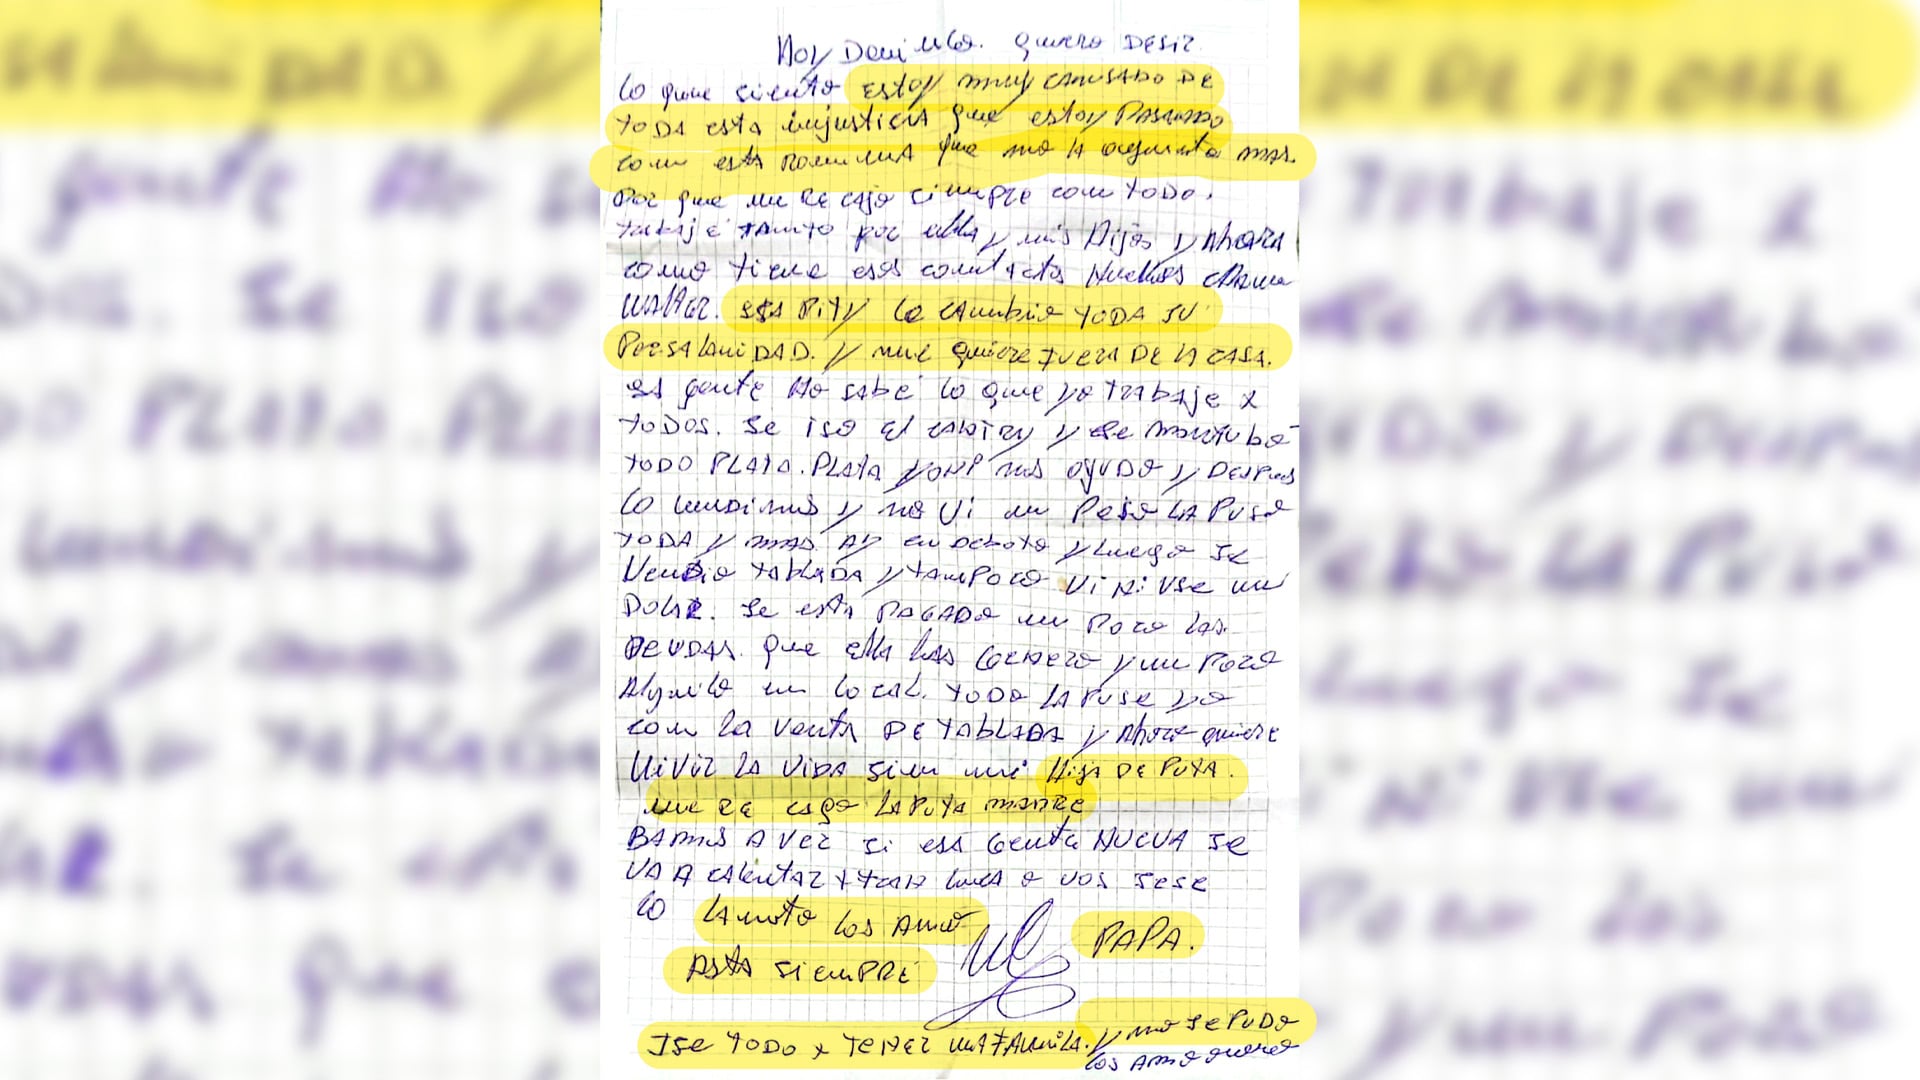 Hoy Domingo. quiero DESiR
lo que siento estoy muy CANSADO DE
TODA esta injusticia que estoy PASANDO
con esta ROMINA que no la aguanto mas.
Por que me RE cago siempre con TODO.
trabajé tanto por ella y mis Hijos y Ahora
como tiene esos contactos Nuevos
Walter. esa Pity le cambio TODA SU
PersalaniDAD. y me quiere fuera DE la CASA.
es gente No sabe lo que yo trabaje x
TODOS. Se iso el y se mantubo
TODO PLATA. PLATA nos ayudo y DESPues
lo vendimos y no Vi un Peso LA PUSE
TODA y mas. en Deboto y luego Se
Vendio TablADA y tampoco Vi Ni use un
Dolar. Se esta PAGADO un Poco las
DEUDAS. que ella las Genero y un Poco
Alquilo un local. TODO LA PUSE yo
con la venta DE TABLADA y Ahora quiere
ViVir la ViDA sin mi Hija DE PUTA.
me RE cago LA PUTA MADRE
BAmos A Ver si esa Gente NUEVA Se
VA A calentar x vos Jese
lo lamento los Amo PAPA.
Asta siempre
ISe TODO x TENER una FAmila. y no se PUDO
los Amo